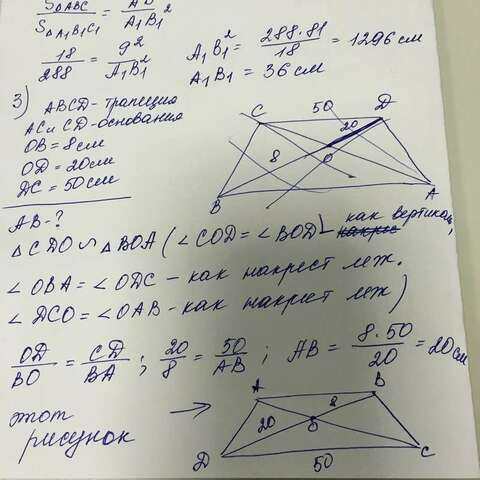 S△ABC / S△A₁B₁C₁ = AB² / A₁B₁²
18/288 = 9²/A₁B₁²
A₁B₁² = 288·81/18 = 1296 см
A₁B₁ = 36 см
3) ABCD - трапеция
AC и CD - основания
OB = 8 см
OD = 20 см
DC = 50 см
C 50 D
20
8 O
B A
AB - ?
△CDO ∽ △BOA (∠COD = ∠BOD - как вертикал,
∠OBA = ∠ODC - как накрест леж.
∠DCO = ∠OAB - как накрест леж)
OD/BO = CD/BA ; 20/8 = 50/AB ; AB = 8·50/20 = 20 см
этот →
рисунок
A B
20 8
O
D 50 C